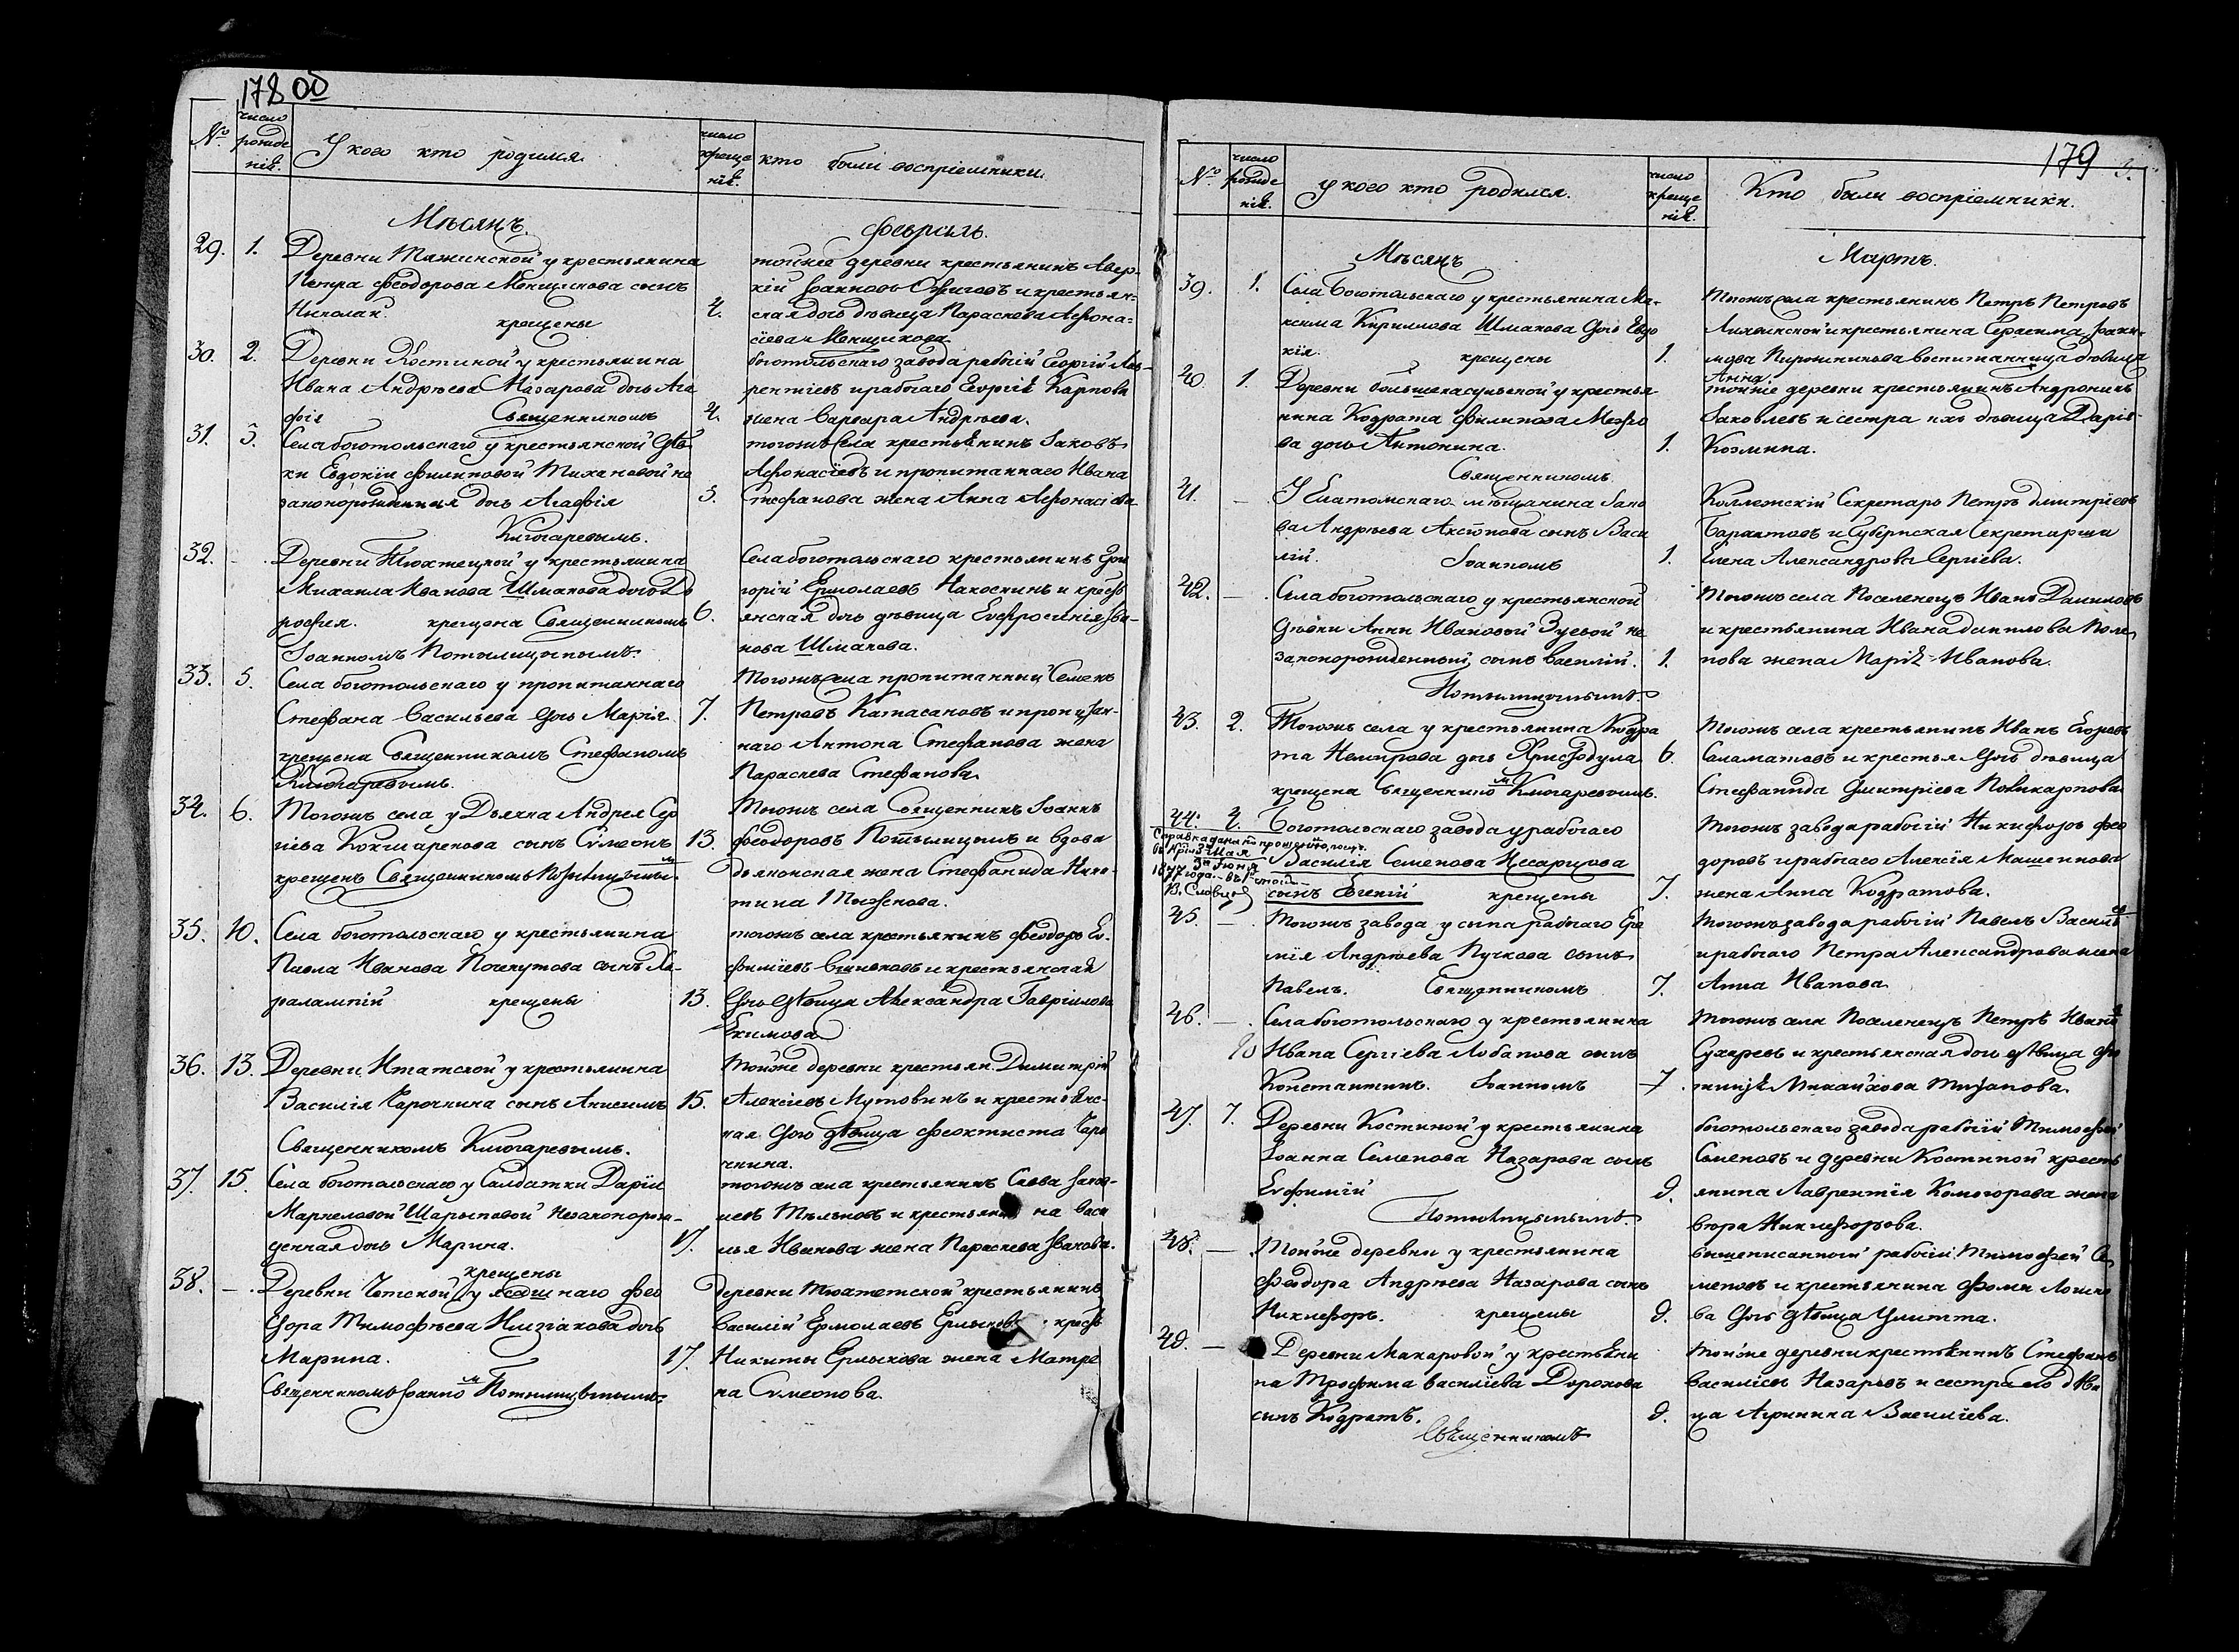 178 об
№ число рожде нія. У кого кто родился. число креще нія. кто были воспріемники.
Мѣсяцъ. Февраль.
29. 1. Деревни Тяжинской у крестьянина
Петра Феодорова Менщикова сынъ
Николай. крещены 4.
тойже деревни крестьянинъ Авер-
кій Іоанновъ Ожиговъ и крестьян-
ская дочь дѣвица Параскева Афона-
сіева Менщикова.
30. 2. Деревни Костиной у крестьянина
Ивана Андрѣева Назарова дочь Ага
фія Священникомъ 4.
боготольскаго завода рабчій Георгій Лав-
рентіевъ и рабчаго Георгія Карпова
жена Варвара Андрѣева.
31. 3. Села боготольскаго у крестьянской дѣв
ки Евдокіи Филиповой Тихановой не
законорожденная дочь Агафія 5.
Ключаревымъ.
тогожъ села крестьянинъ Іаковъ
Афонасіевъ и пропитаннаго Ивана
Стефанова жена Анна Афонасіева
32. -. Деревни Тюхтецкой у крестьянина
Михаила Иванова Шмакова дочь До
рофея. крещена Священникомъ 6.
Іоанномъ Потылицынымъ.
Села боготольскаго крестьянинъ Гри
горій Ермолаевъ Накоскинъ и кресть
янская дочь дѣвица Евфросинія Ива-
нова Шмакова.
33. 5. Села боготольскаго у пропитаннаго
Стефана Васильева дочь Марія 7.
крещена Священникомъ Стефаномъ
Ключаревымъ.
Тогожъ села пропитанный Семенъ
Петровъ Катасановъ и пропитан-
наго Антона Стефанова жена
Параскева Стефанова.
34. 6. Тогожъ села у Дьячка Андрея Сер
гіева Кокшаренова сынъ Сѵмеонъ 13.
крещенъ Священникомъ Потылицынымъ.
Тогожъ села Священникъ Іоаннъ
Феодоровъ Потылицынъ и вдова
дьяконская жена Стефанида Ники-
тина
35. 10. Села боготольскаго у крестьянина
Павла Иванова Почекутова сынъ Ха-
ралампій крещены 13.
тогожъ села крестьянинъ Феодоръ Ев-
фиміевъ и крестьянская
дочь дѣвица Александра Гавріилова
Екимова
36. 13. Деревни Итатской у крестьянина
Василія Чарочкина сынъ Анисимъ 15.
Священникомъ Ключаревымъ.
Тойже деревни крестьян. Димитрій
Алексіевъ Мутовинъ и крестьянс-
кая дочь дѣвица Феоктиста Чаро
чкина.
37. 15. Села боготольскаго у Салдатки Даріи
Маркеловой Шарыповой незаконорож-
денная дочь Марина. 17.
крещены
тогожъ села крестьянинъ Савва Іаков-
левъ и крестьянина Васи
лья Иванова жена Параскева Иванова.
38. -. Деревни Четской у ясашнаго Фео
дора Тимофѣева дочь
Марина. 17.
Священникомъ Іоанномъ Потылицынымъ.
деревни Тюхтетской крестьянинъ
Василій Ермолаевъ и кресть
Никиты Ермакова жена Матре
на Сѵмеонова.
179
№ число рожде нія. у кого кто родился. число креще нія. Кто были воспріемники.
Мѣсяцъ Мартъ.
39. 1. Села Боготольскаго у крестьянина Ма-
ксима Кирилова Шмакова дочь Евдо
кія. крещены 1.
Тогожъ села крестьянинъ Петръ Петровъ
и крестьянина Герасима Іоаки-
мова Пирожникова воспитанница дѣвица
Анна
40. 1. Деревни большекосульской у крестья
нина Кодрата Филипова Межо
ва дочь Антонина. 1.
Священникомъ
тойже деревни крестьянинъ Андроникъ
Іаковлевъ и сестра ихъ дѣвица Дарія
Козмина.
41. - У Елатомскаго мѣщанина Іако
ва Андрѣева сынъ Васи
лій. Іоанномъ 1.
Коллежскій Секретарь Петръ Димитріевъ
и Губернская Секретарша
Елена Александрова Сергіева.
42. -. Села боготольскаго у крестьянской
дѣвки Анны Ивановой Зуевой не
законорожденный сынъ Василій. 1.
Потылицынымъ
Тогожъ села Поселенецъ Иванъ Даниловъ
и крестьянина Ивана данилова Поле
нова жена Марія Иванова.
43. 2. Тогожъ села у крестьянина Кодра
та Немирова дочь Христодула 6.
крещена Священникомъ Ключаревымъ.
Тогожъ села крестьянинъ Иванъ Егоровъ
Саламатовъ и крестья дочь дѣвица
Стефанида Дмитріева Поликарпова
44. 4. Боготольскаго завода у рабчаго
Василія Семенова Несарцова
сынъ Евгеній крещены 7.
Справка дана по прошенію,
3го Іюня
В. Словцов
Тогожъ завода рабчій Никифоръ Фео
доровъ и рабчаго Алексія Машенкова
жена Анна Кодратова.
45. -. Тогожъ завода у сына рабчаго Ере
мія Андрѣева Пучкова сынъ
Павелъ. Священникомъ 7.
Тогожъ завода рабчій Павелъ Васильевъ
и рабчаго Петра Александрова жена
Анна Иванова.
46. -. Села боготольскаго у крестьянина
Ивана Сергіева Лобанова сынъ
Константинъ. Іоанномъ 7.
Тогожъ села Поселенецъ Петръ Ивановъ
Сухаревъ и крестьянская дочь дѣвица Фо
тинія Михайлова Тиханова.
47. 7. Деревни Костиной у крестьянина
Іоанна Семенова Назарова сынъ
Евфимій 9.
Потылицынымъ.
боготольскаго завода рабчій Тимофей
Семеновъ и деревни Костиной кресть
янина Лаврентія Комогорова жена
Никифорова.
48. -. Тойже деревни у крестьянина
Феодора Андрѣева Назарова сынъ
Никифоръ. крещены 9.
вышеписанный рабчій Тимофей Се
меновъ и крестьянина Фомы Логино
ва дочь дѣвица Улитта.
49. - Деревни Макаровой у крестьяни
на Трофима Василіева Дорохова
сынъ Кодратъ. 9.
Священникомъ
Тойже деревни крестьянинъ Стефанъ
Василіевъ Назаровъ и сестра его дѣви
ца Агрипина Василіева.